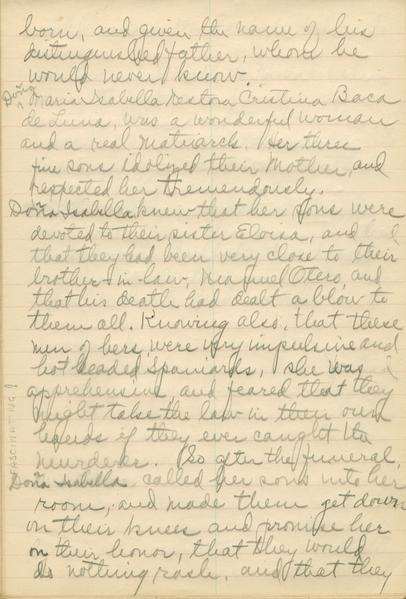 born, and given the name of his
distinguished father, whom he
would never know.
Doña
Maria Isabella Nestora Cristina Baca
de Luna, was a wonderful woman
and a real Matriarch. Her three
fine sons idolized their Mother, and
respected her tremendously.
Doña Isabella knew that her sons were
devoted to their sister Eloisa, and
that they had been very close to their
brother-in-law, Manuel Otero, and
that his death had dealt a blow to
them all. Knowing also, that these
men of hers, were very impulsive and
hot headed Spaniards, she was
apprehensive, and feared that they
might take the law in their own
hands if they ever caught the
murderer. So after the funeral,
Doña Isabella called her sons into her
room, and made them get down
on their knees and promise her
on their honor, that they would
do nothing rash, and that they
FASCINATING!